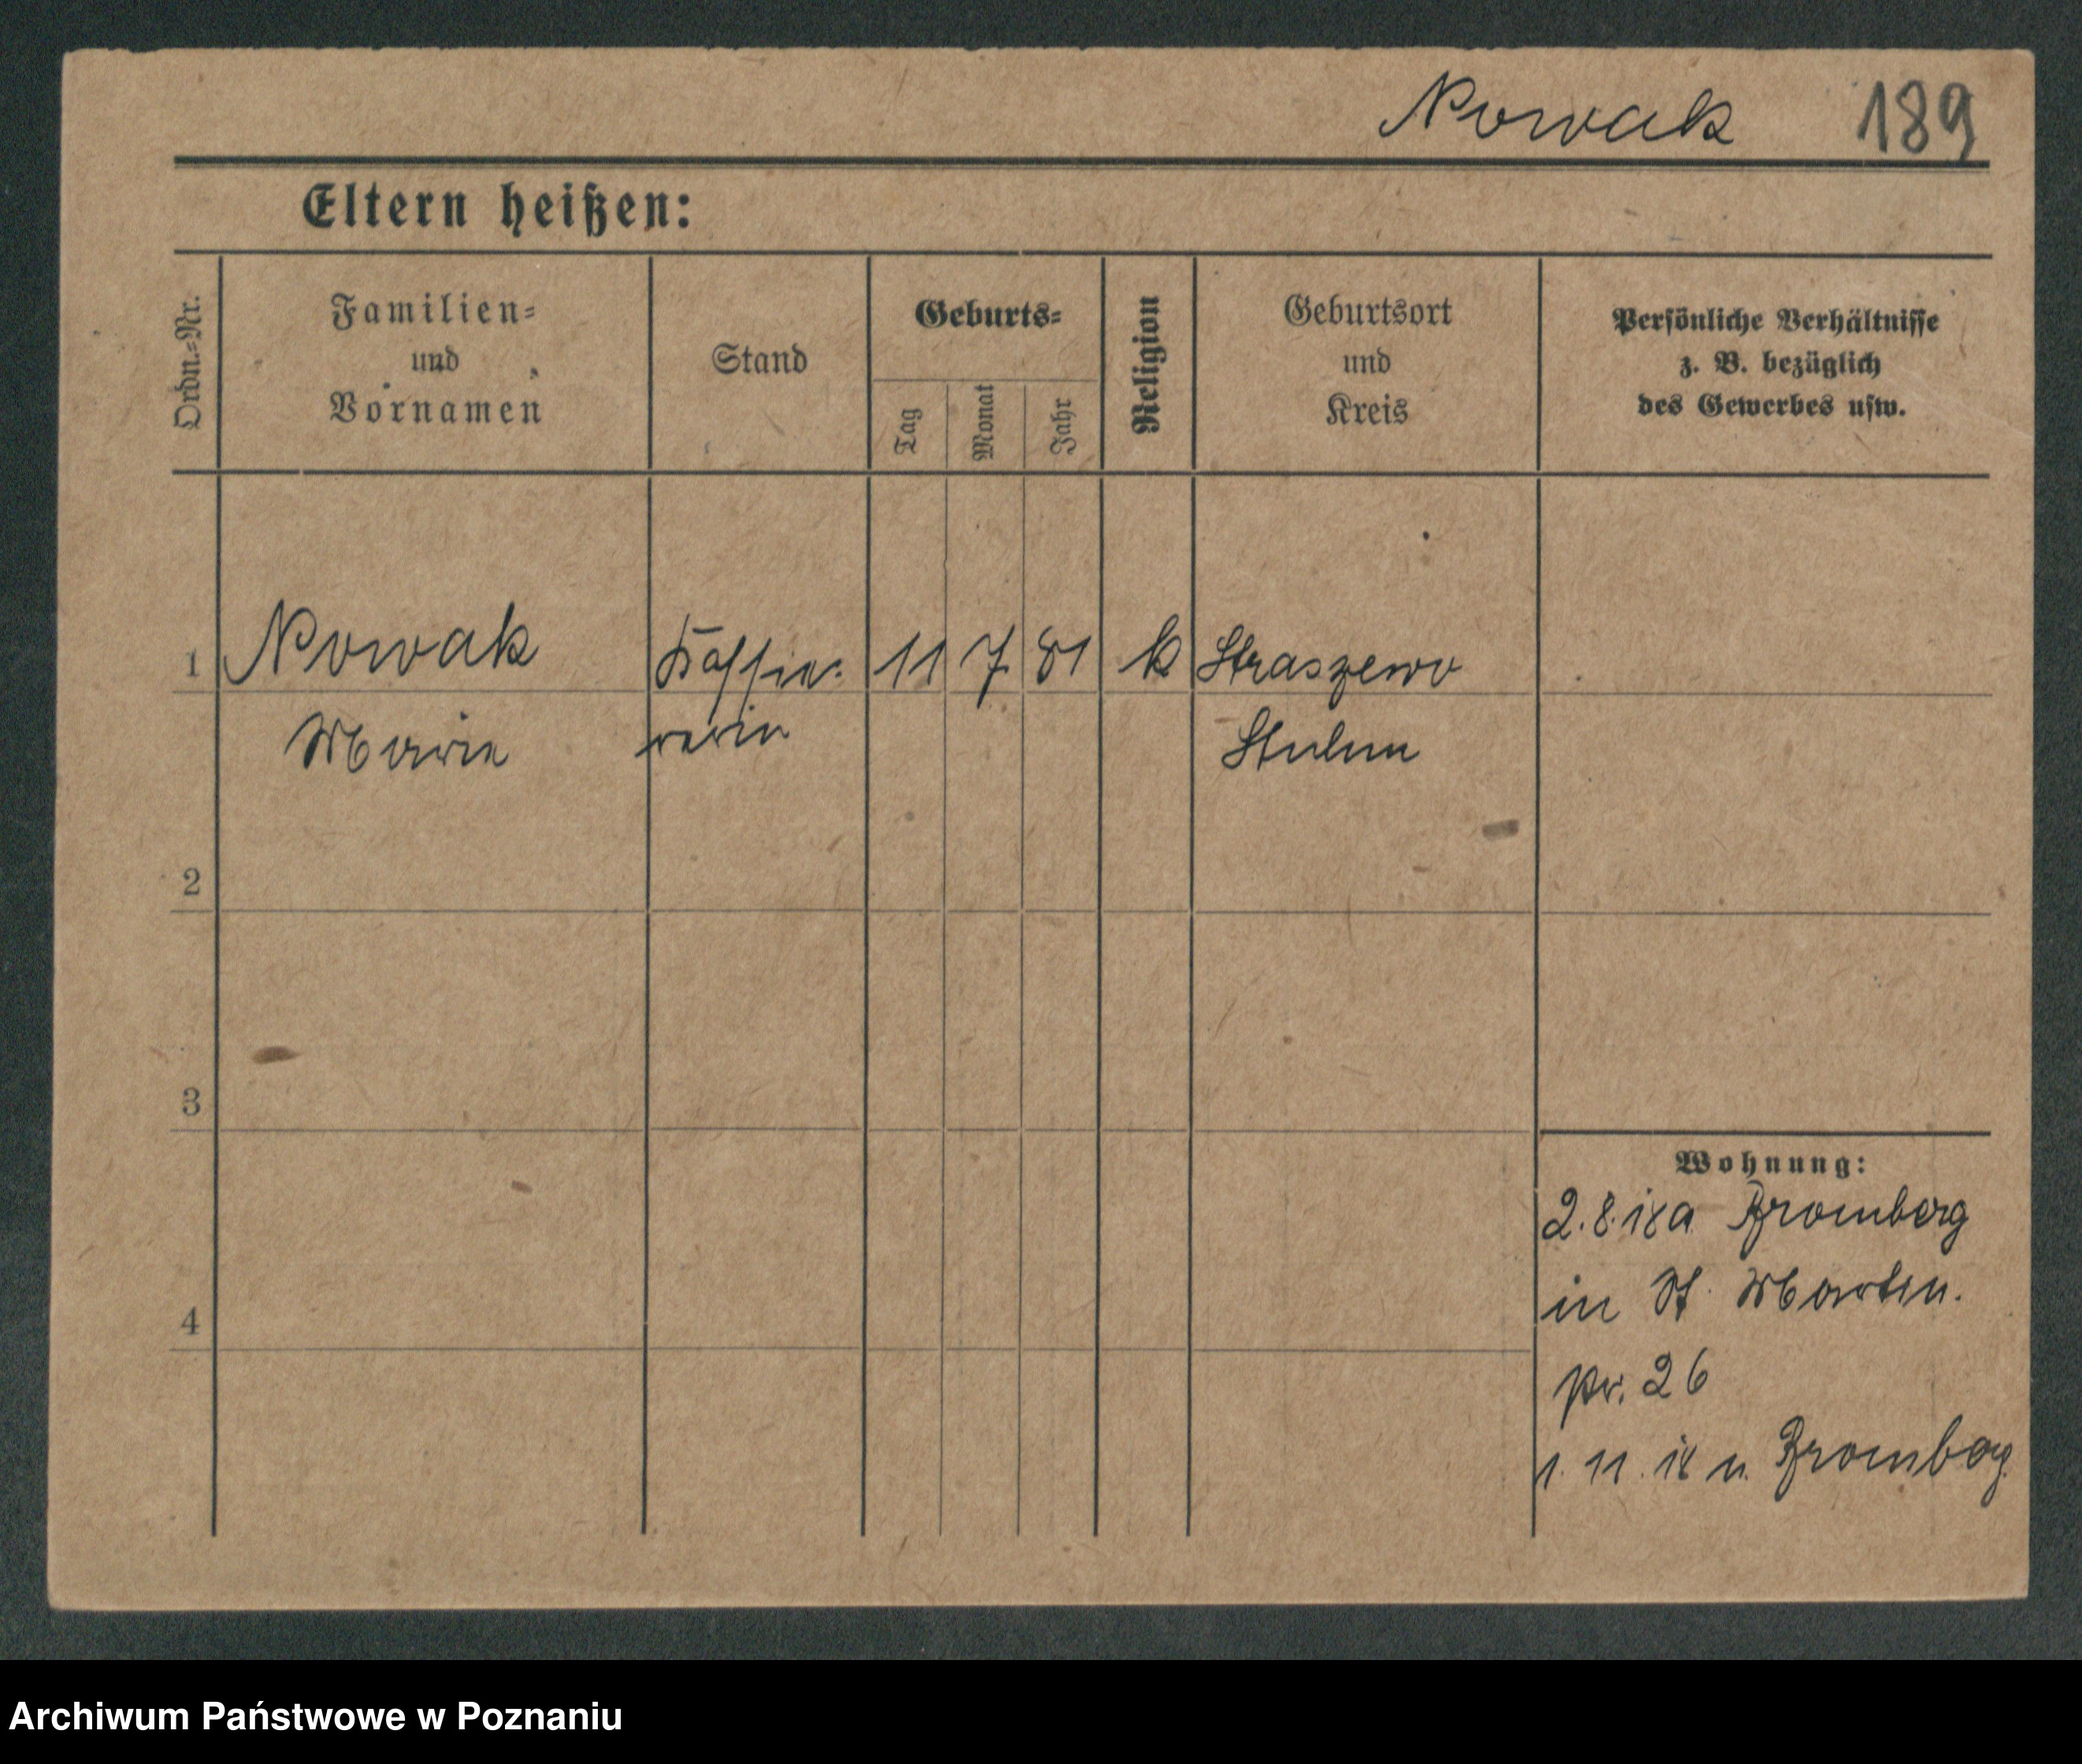 Nowak 189
Eltern heißen:
Ordn.-Nr.
Familien-
und
Vornamen
Stand
Geburts-
Tag
Monat
Jahr
Religion
Geburtsort
und
Kreis
Persönliche Verhältnisse
z. B. bezüglich
des Gewerbes usw.
1 Nowak 11 7 81 k Straszewo
Marie Stuhm
2
3
4
Wohnung:
2.8.18 a Bromberg
in St. Martin.
26
1. 11. 18 n. Bromberg
Archiwum Państwowe w Poznaniu